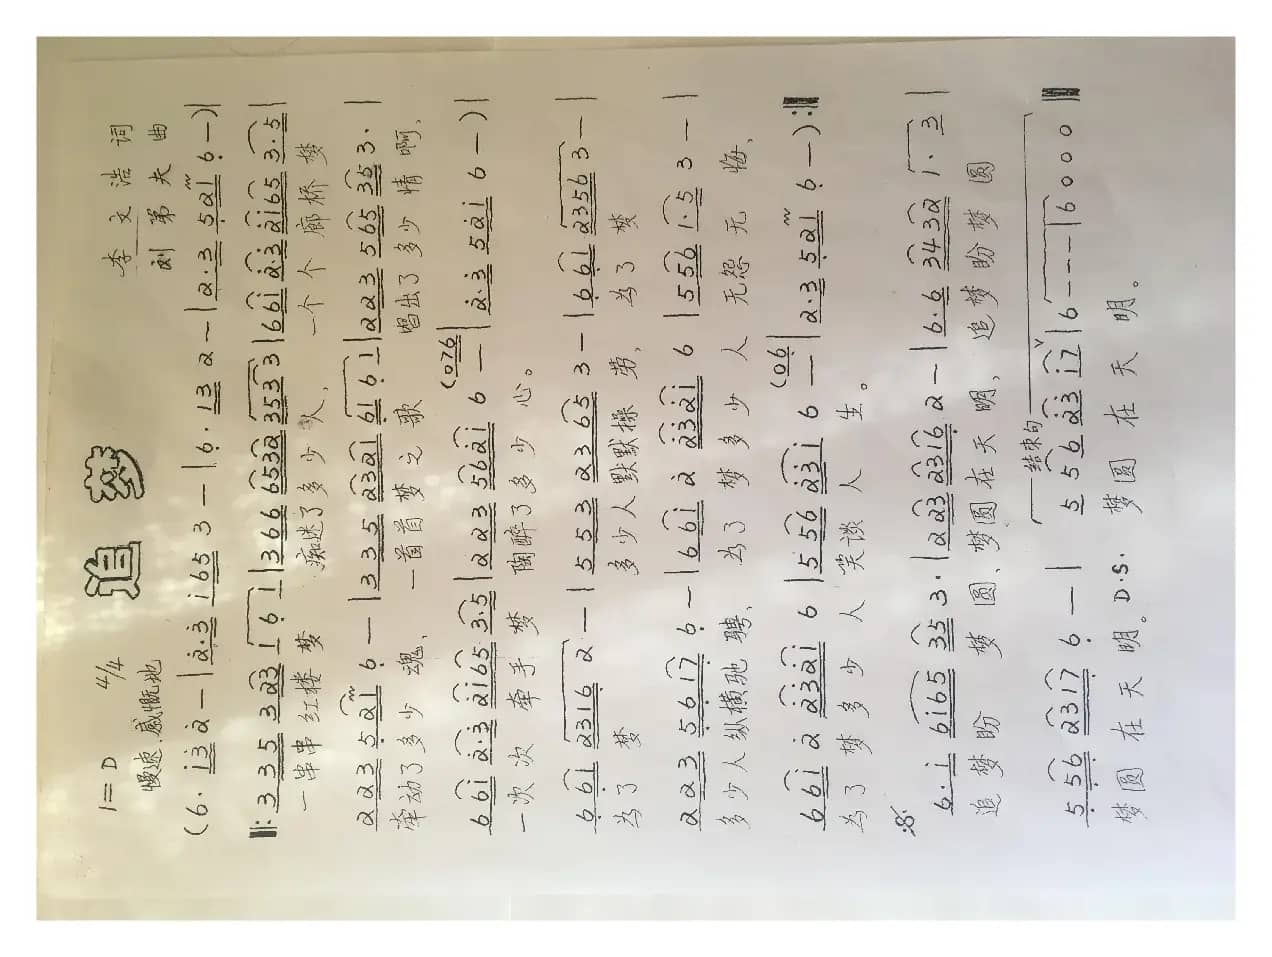 追 梦
1=D 4/4
慢速.感慨地
李文浩 词
刘第夫 曲
(6· i3 2̇ - | 2̇·3̇ i65 3 - | 6· 13 2 - | 2·3 521 6 -) |
‖: 335 323 161 | 366 6532 353 3 | 66i 2̇·3̇ 2̇i65 3·5 |
一串串 红楼 梦 痴迷了多少人, 一个个廊桥梦
223 521 6 - | 335 2321 6161 | 223 565 35 3· |
牵动了多少魂, 一首首梦之歌 唱出了多少情啊,
66i 2̇·3̇ 2̇i65 3·5 | 223 562̇i 6 - (076 | 2̇·3̇ 52̇i 6 -) |
一次次牵手梦 陶醉了多少心。
661 2316 2 - | 553 2365 3 - | 661 2356 3 - |
为了梦 多少人默默操劳, 为了梦
223 5617 6 - | 66i 2̇ 2̇3̇2̇i 6 | 556 1·5 3 - |
多少人纵横驰骋, 为了梦多少人 无怨无悔,
66i 2̇ 2̇3̇2̇i 6 | 556 2̇3̇i 6 - (06 | 2·3 521 6 -) :‖
为了梦多少人 笑谈人生。
6·i 6i65 35 3· | 223 2316 2 - | 6·6 3432 1·3 |
追梦盼梦圆、梦圆在天明, 追梦盼梦圆
结束句
556 2317 6 - | 556 2̇3̇ i7 | 6 - - - | 6 0 0 0 ‖
梦圆在天明。D.S. 梦圆在天明。